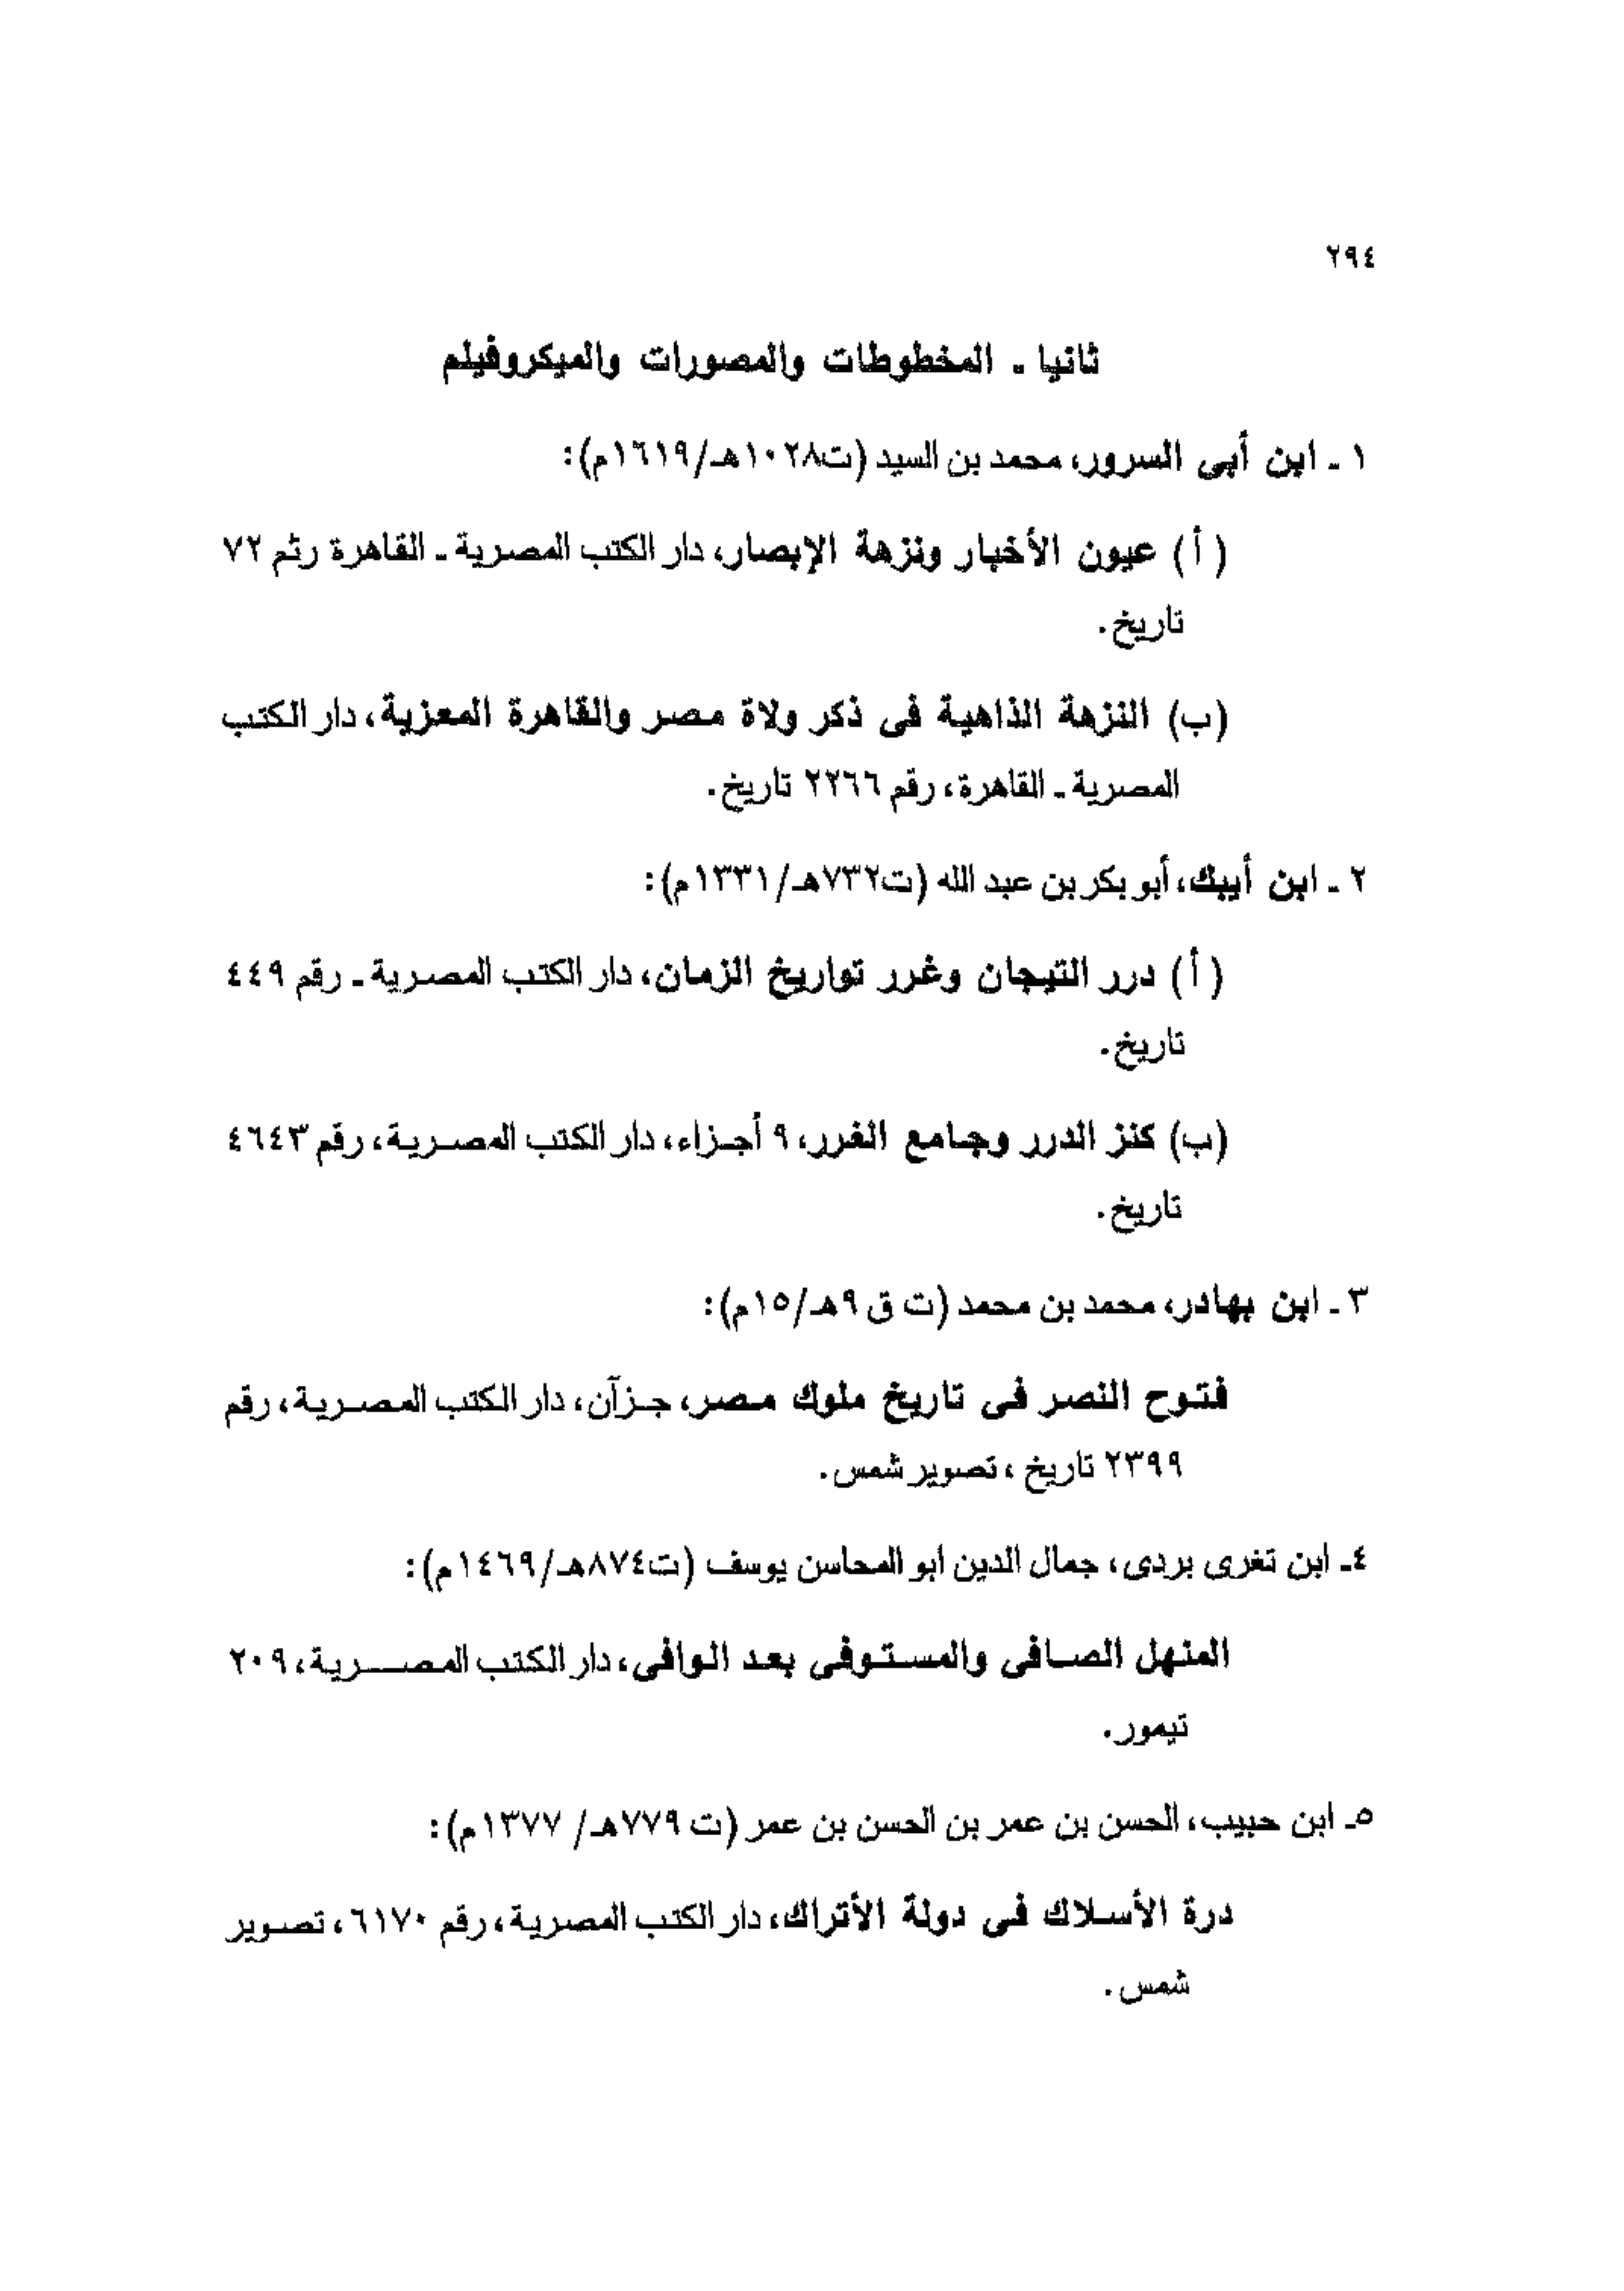 ٢٩٤
ثانيا ـ المخطوطات والمصورات والميكروفيلم
١ ـ ابن أبى السرور، محمد بن السيد (ت١٠٢٨هـ/١٦١٩م):
( أ ) عيون الأخبار ونزهة الإبصار، دار الكتب المصرية ـ القاهرة رثم ٧٢
تاريخ.
(ب) النزهة الذاهية فى ذكر ولاة مصر والقاهرة المعزية، دار الكتب
المصرية ـ القاهرة، رقم ٢٢٦٦ تاريخ.
٢ ـ ابن أيبك، أبو بكر بن عبد الله (ت٧٣٢هـ/١٣٣١م):
( أ ) درر التيجان وغرر تواريخ الزمان، دار الكتب المصرية ـ رقم ٤٤٩
تاريخ.
(ب) كنز الدرر وجامع الغرر، ٩ أجزاء، دار الكتب المصرية، رقم ٤٦٤٣
تاريخ.
٣ ـ ابن بهادر، محمد بن محمد (ت ق ٩هـ/١٥م):
فتوح النصر فى تاريخ ملوك مصر، جزآن، دار الكتب المصرية، رقم
٢٣٩٩ تاريخ ، تصوير شمس.
٤ـ ابن تغرى بردى، جمال الدين ابو المحاسن يوسف (ت٨٧٤هـ/١٤٦٩م):
المنهل الصافى والمستوفى بعد الوافى، دار الكتب المصرية، ٢٠٩
تيمور.
٥ـ ابن حبيب، الحسن بن عمر بن الحسن بن عمر (ت ٧٧٩هـ/ ١٣٧٧م):
درة الأسلاك فى دولة الأتراك، دار الكتب المصرية، رقم ٦١٧٠، تصوير
شمس.